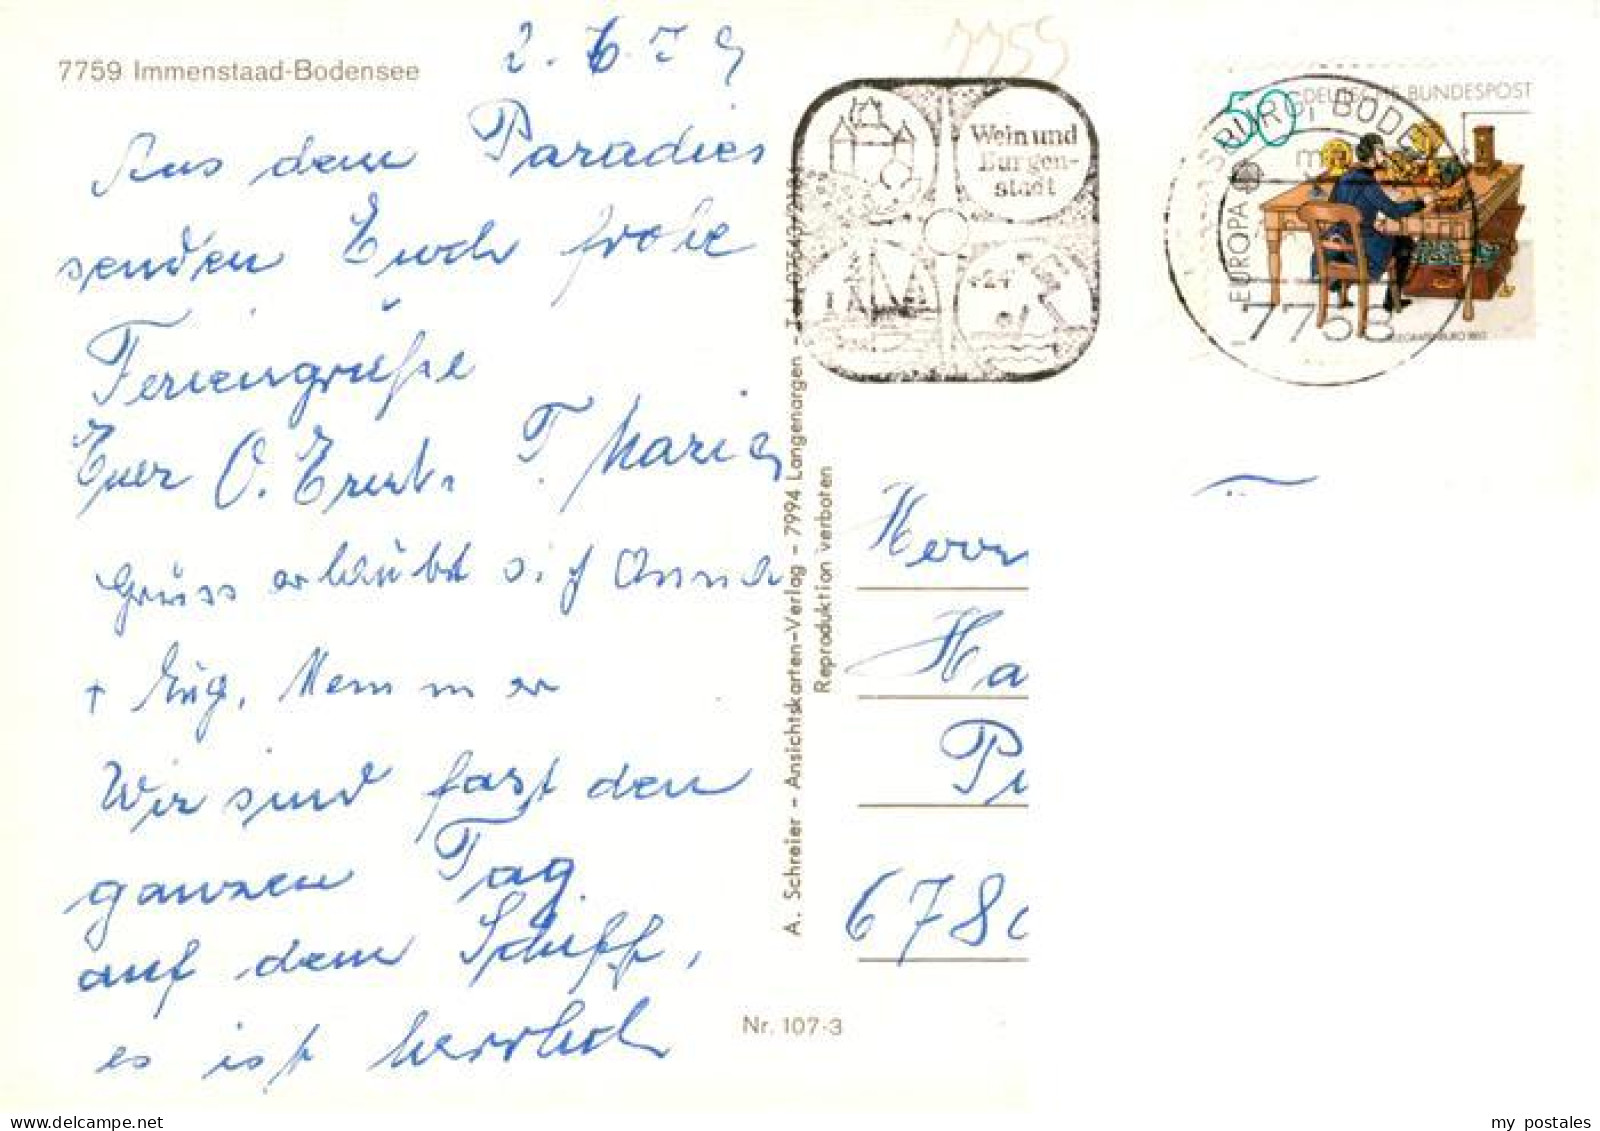 7759 Immenstaad-Bodensee
2.6.79
7759
Aus dem Paradies
senden Euch frohe
Feriengrüße
Euer O. Ernst. T. Maria
Grüss erlaubt sich Anna
+ Eug. Memmer
Wir sind fast den
ganzen Tag
auf dem Schiff,
es ist herrlich
A. Schreier - Ansichtskarten-Verlag - 7994 Langenargen - Tel. 07543/2191
Reproduktion verboten
Nr. 107-3
Wein und
Burgen-
stadt
+24°
DEUTSCHE BUNDESPOST
50
EUROPA
BODE
7758
Herrn
Ha
P
678
my postales
www.delcampe.net